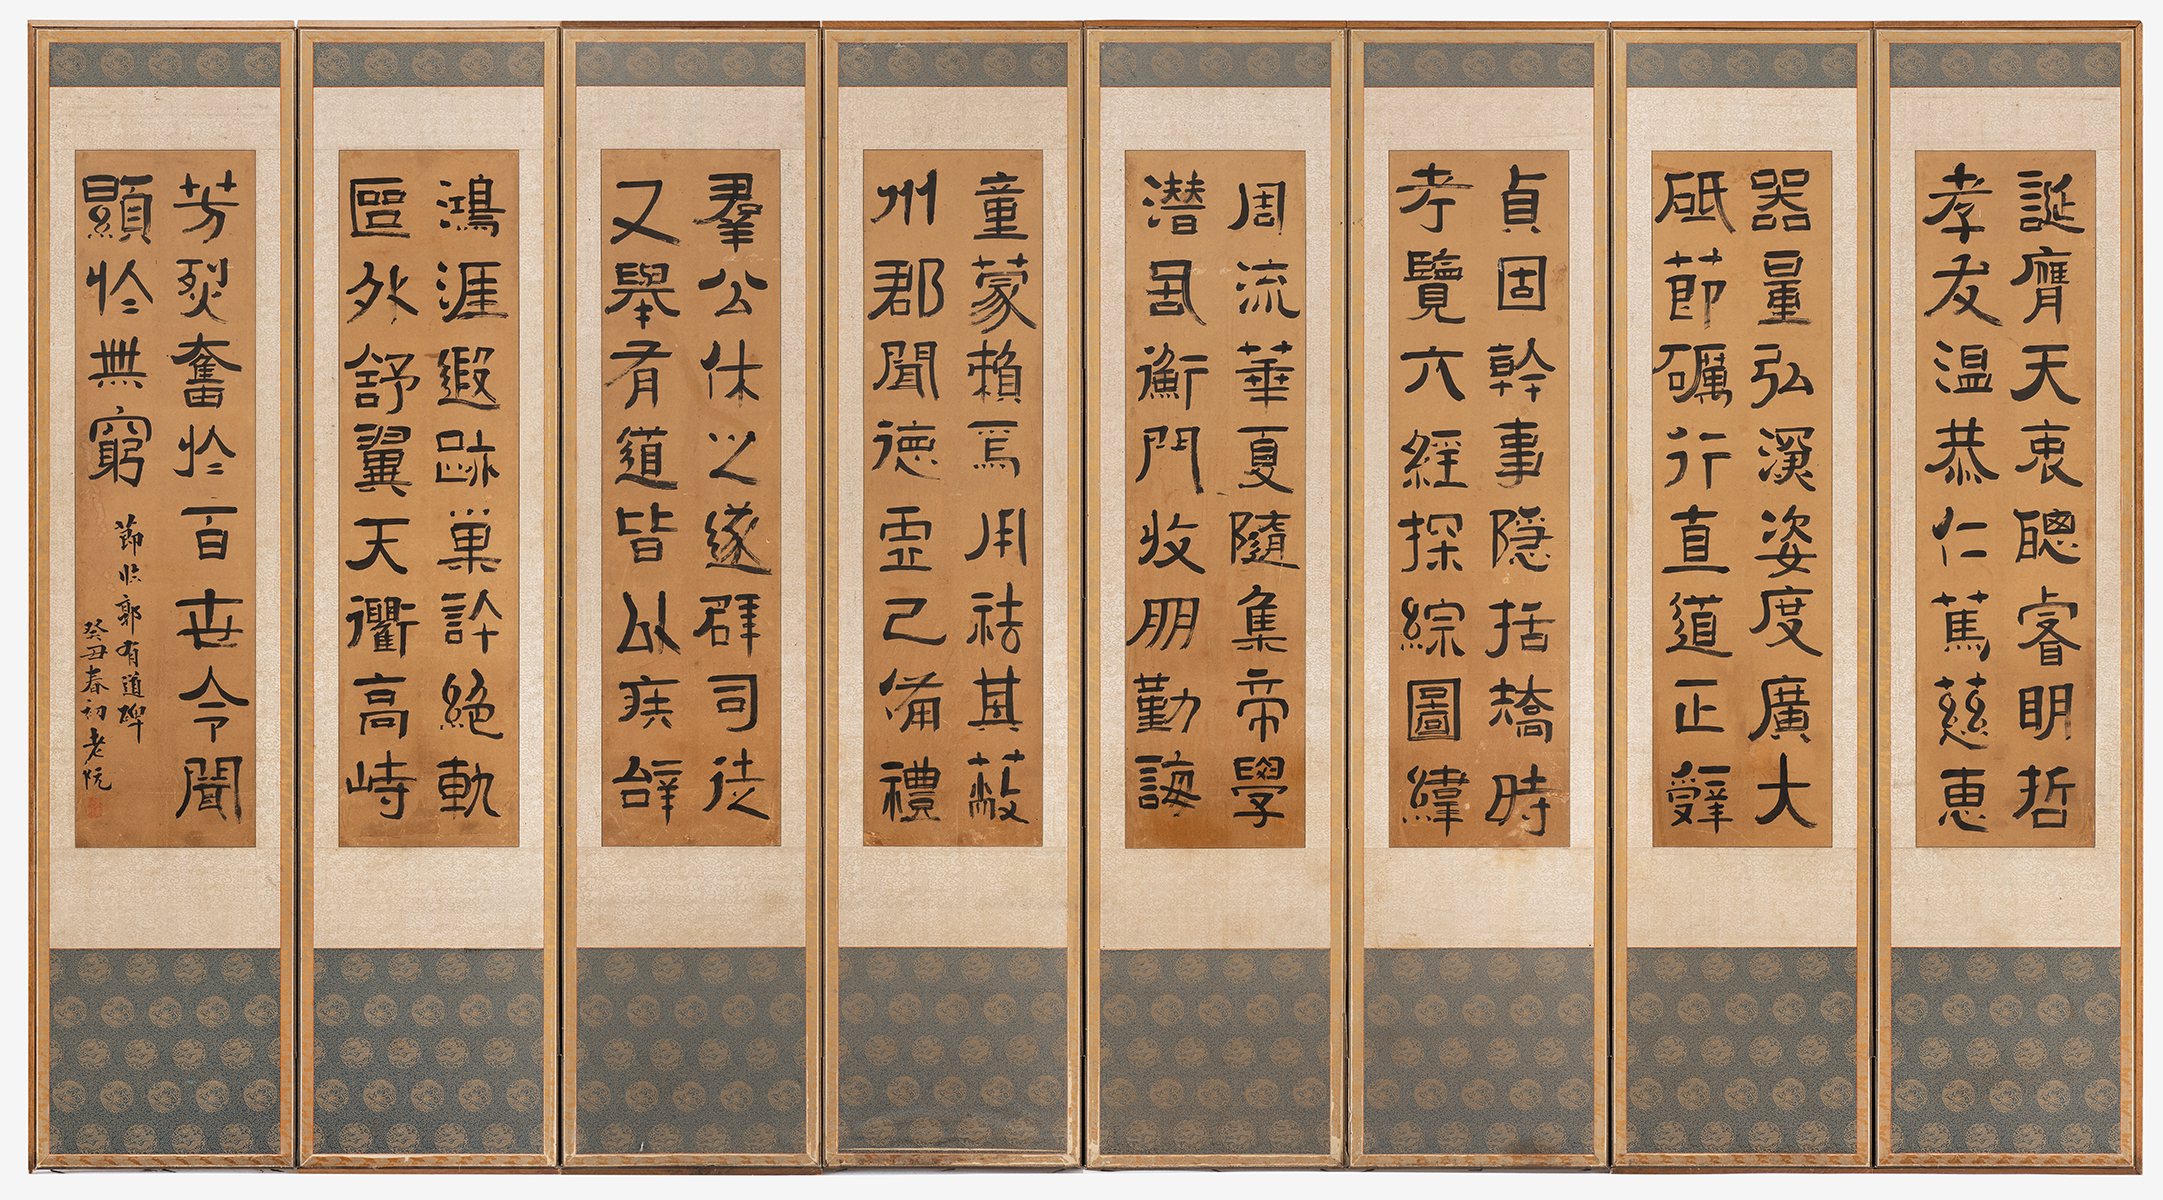 誕膺天衷聰睿明哲
孝友温恭仁篤慈惠
器量弘深姿度廣大
砥節礪行直道正辭
貞固幹事隱括矯時
考覽六經探綜圖緯
周流華夏隨集帝學
潛周衡門收朋勤誨
童蒙賴焉用祛其蔽
州郡聞德虛己備禮
羣公休之遂辟司徒
又舉有道皆以疾辭
鴻涯遐跡巢許絕軌
區外舒翼天衢高峙
芳烈奮於百世令聞
顯於無窮
節臨郭有道碑
癸丑春初老阮